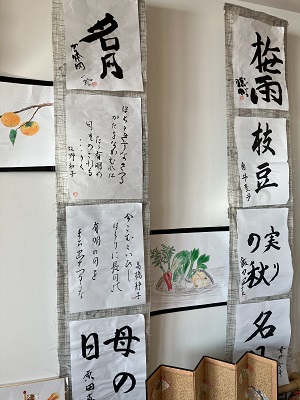 名月
ほととぎすなきつる
かたをながむれば
ただ有明の
月ぞのこれる
今こむといひし
ばかりに長月の
有明の月を
まちいでつるかな
母の
日
原田
梅雨
枝豆
実り
の秋
名月